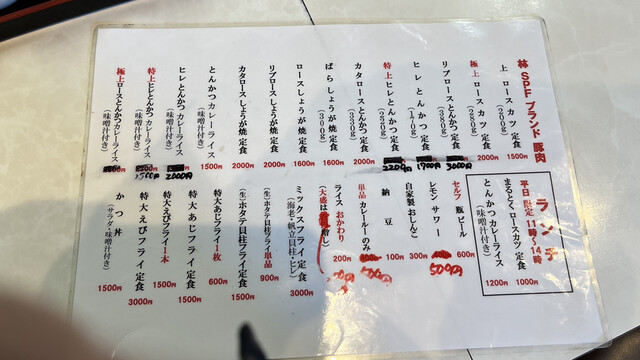 林 SPF ブランド 豚肉
上 ロース カツ 定食 (200g) 1500円
極上 ロース カツ 定食 (280g) 2000円
リブロースとんかつ定食 (380g) 3000円
ヒレ とんかつ 定食 (170g) 1700円
特上 ヒレとんかつ定食 (220g) 2200円
カタロースとんかつ定食 (220g) 2000円
ばらしょうが焼定食 (300g) 1600円
ロースしょうが焼定食 1600円
リブロースしょうが焼定食 2000円
カタロースしょうが焼定食 2000円
とんかつカレーライス (味噌汁付き) 1500円
ヒレとんかつカレーライス (味噌汁付き) 2000円
特上 ヒレとんかつカレーライス (味噌汁付き)
極上 ロースとんかつカレーライス (味噌汁付き)
ランチ
平日限定 11時〜14時
まるとく ロースカツ 定食 1000円
とんかつカレーライス (味噌汁付き) 1200円
セルフ 瓶ビール 600円
レモン サワー 500円
自家製 おしんこ 300円
納豆 100円
単品 カレールーのみ 500円
ライス おかわり 200円
ミックスフライ定食 (海老・帆立貝柱・ヒレ) 3000円
(生)ホタテ貝柱フライ単品 900円
(生)ホタテ貝柱フライ定食 1500円
特大あじフライ1枚 600円
特大 あじフライ 定食 1500円
特大えびフライ1本 1500円
特大えびフライ定食 3000円
かつ丼 (サラダ・味噌汁付き) 1500円